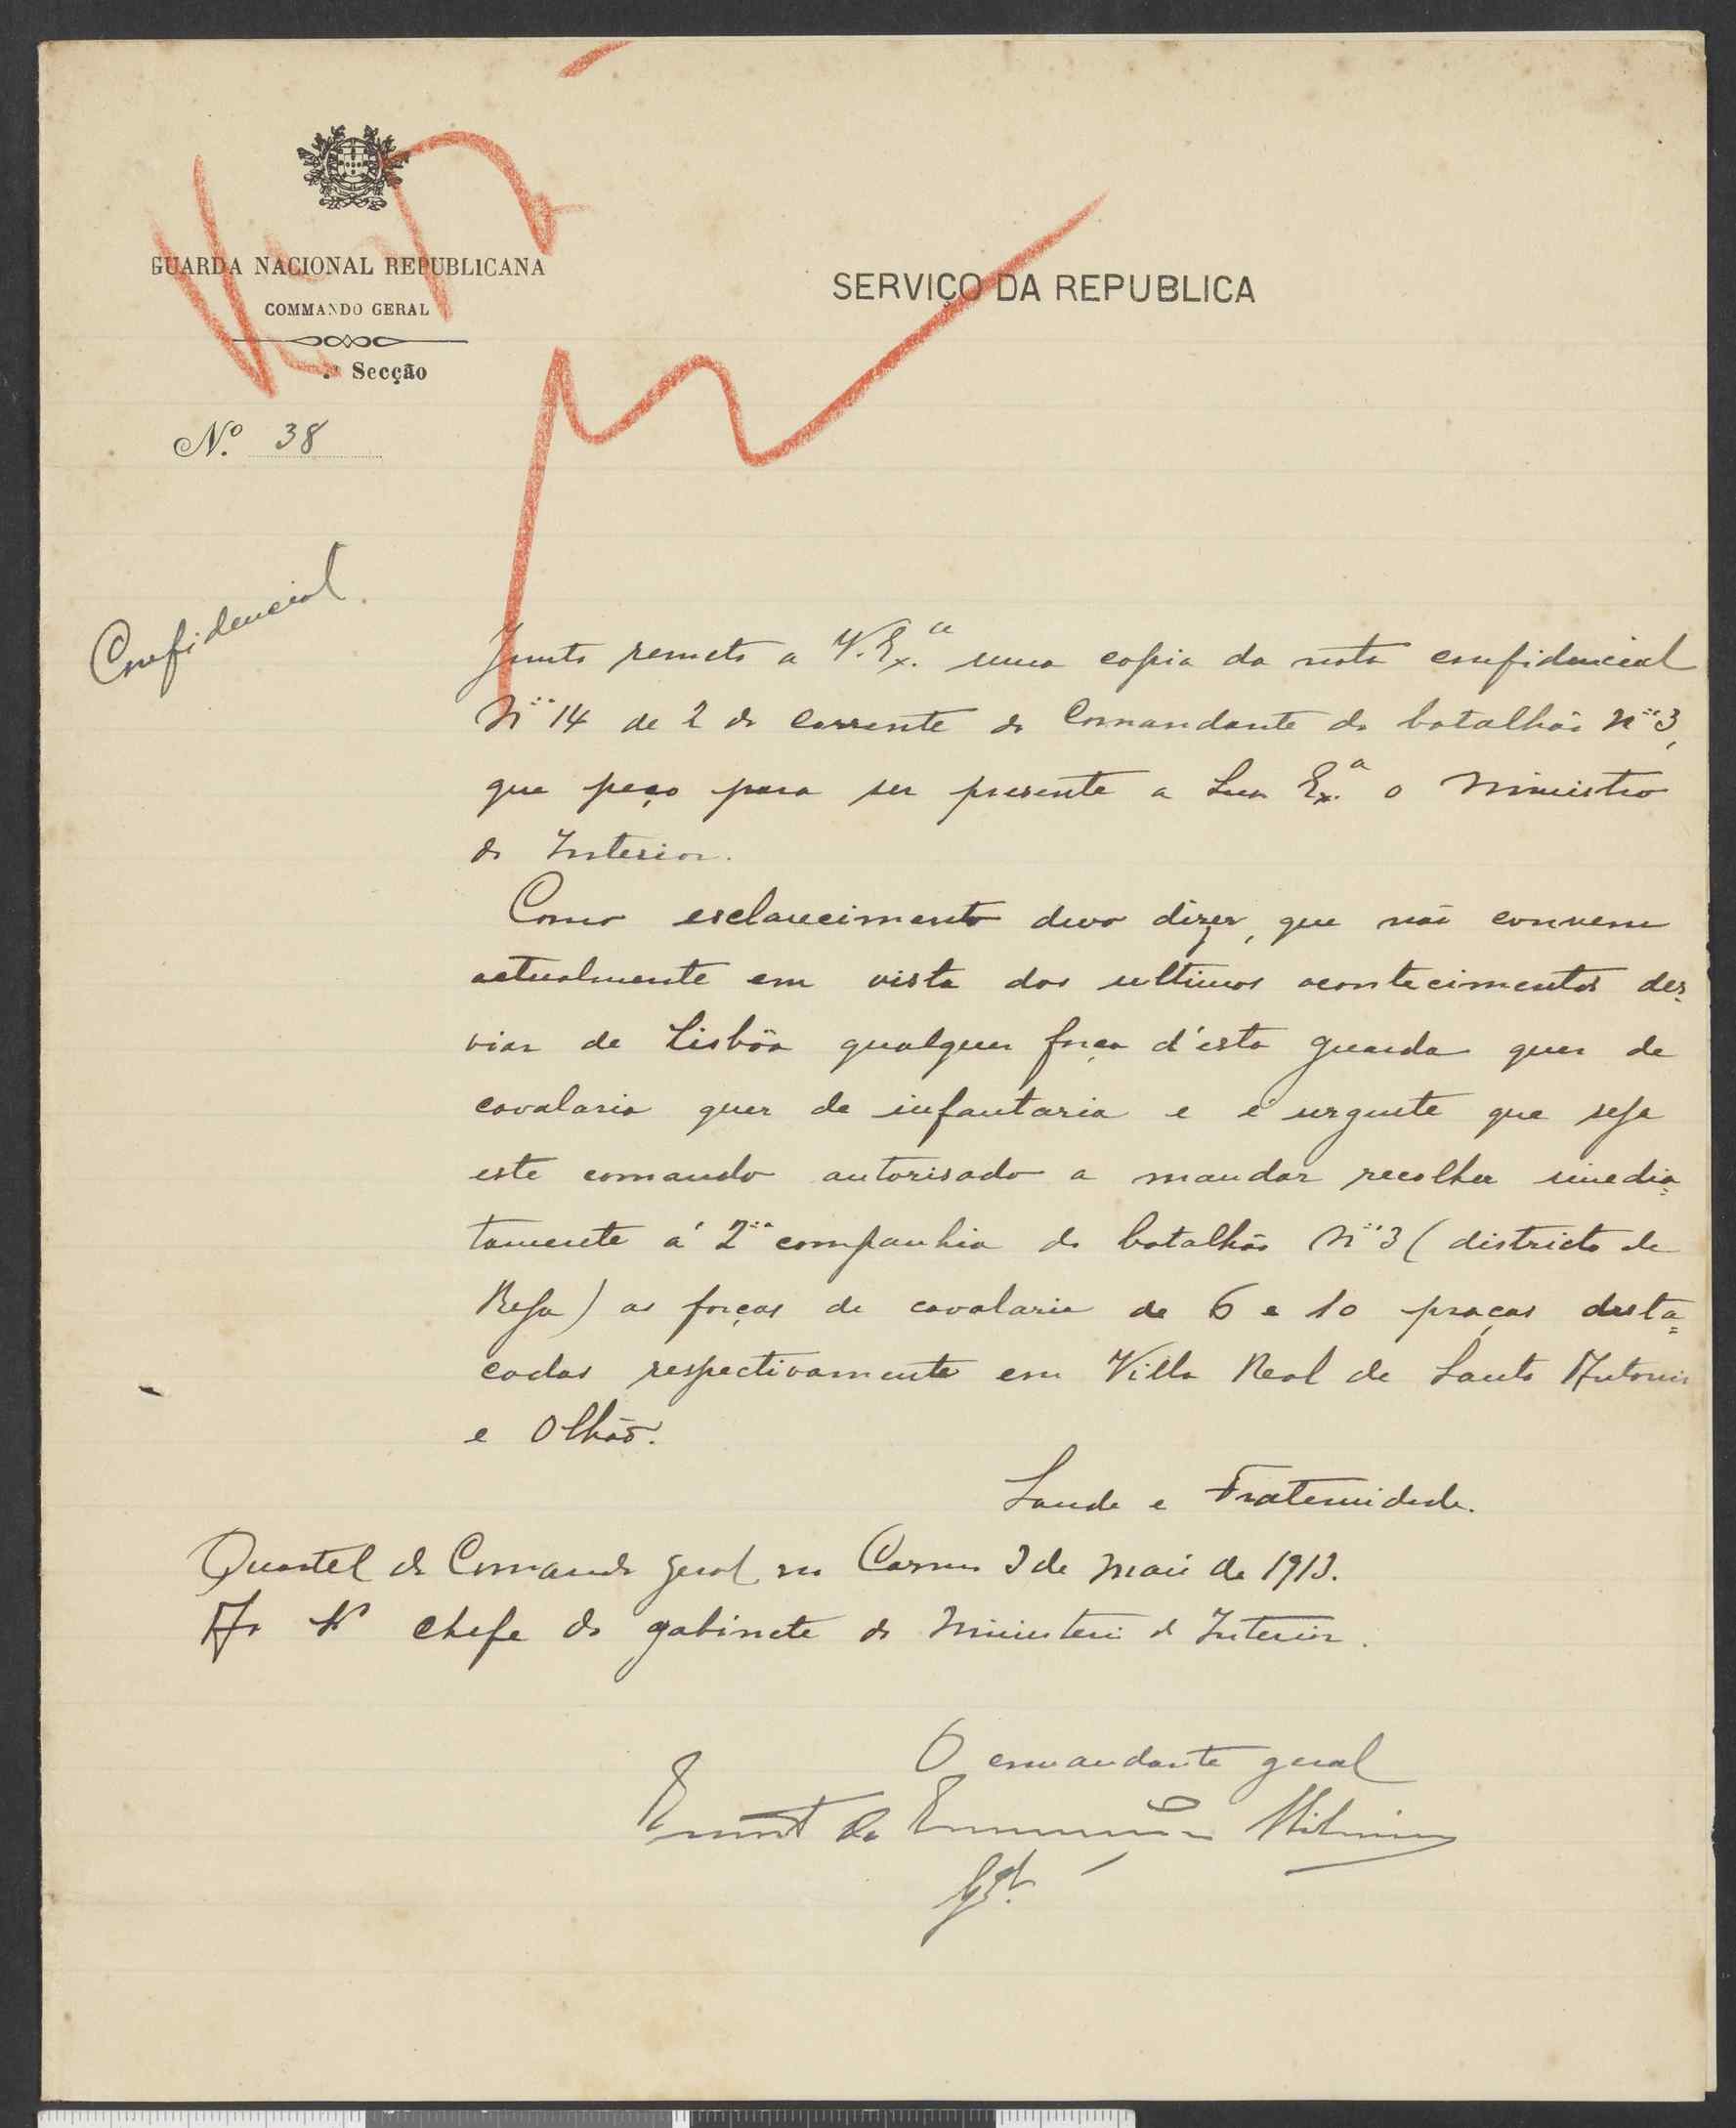 GUARDA NACIONAL REPUBLICANA
COMMANDO GERAL
.ª Secção
N.º 38
SERVIÇO DA REPUBLICA
Confidencial.
Junto remeto a V. Ex.ª uma copia da nota confidencial
Nº 14 de 2 do corrente do Comandante do batalhão nº 3,
que peço para ser presente a Sua Ex.ª o Ministro
do Interior.
Como esclarecimento devo dizer, que não convem
actualmente em vista dos ultimos acontecimentos des-
viar de Lisbôa qualquer força d'esta guarda quer de
cavalaria quer de infantaria e é urgente que seja
este comando autorisado a mandar recolher imedia=
tamente á 2ª companhia do batalhão Nº 3 (districto de
Beja) as forças de cavalaria de 6 e 10 praças desta=
cadas respectivamente em Villa Real de Santo Antonio
e Olhão.
Saude e Fraternidade.
Quartel do Comando geral no Carmo 3 de Maio de 1913.
Ao chefe do gabinete do Ministerio do Interior.
O comandante geral
da Encarnação Ribeiro